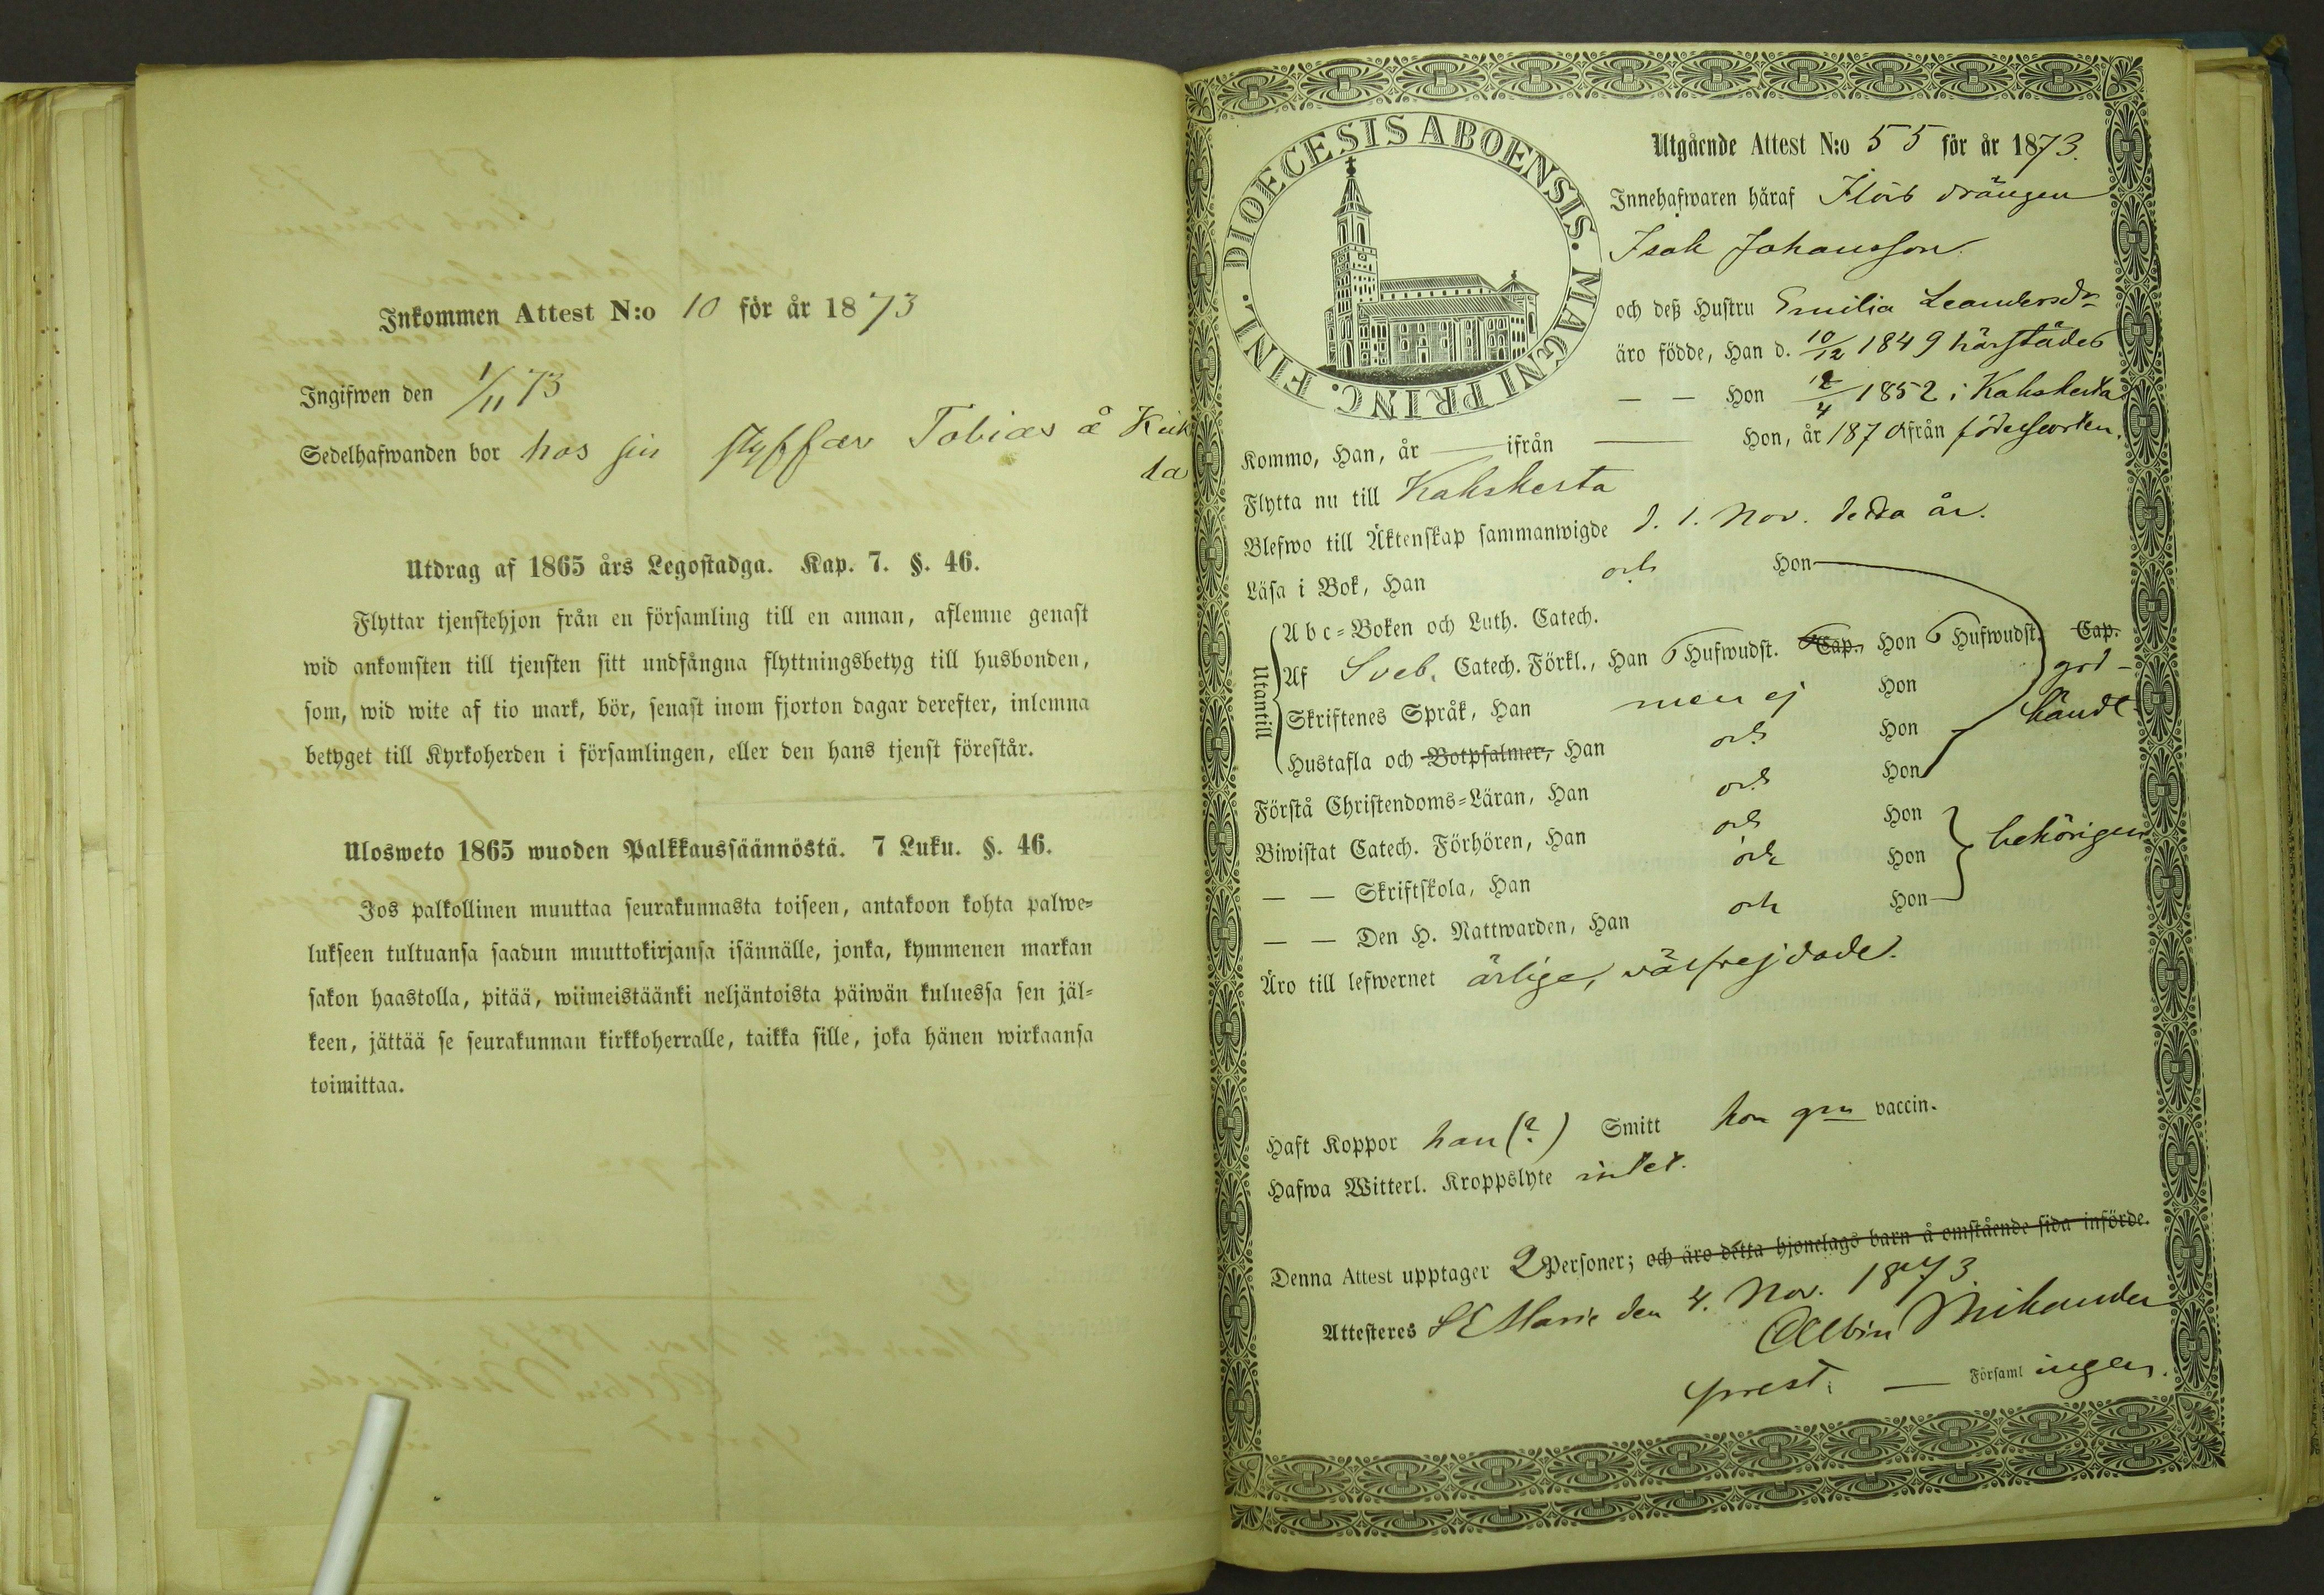 Inkommen Attest N:o 10 för år 1873
Ingifwen den 1/11 73
Sedelhafwanden bor hos sin styffar Tobias å
Utdrag af 1865 års Legostadga. Kap. 7. §. 46.
Flyttar tjenstehjon från en församling till en annan, aflemne genast
wid ankomsten till tjensten sitt undfångna flyttningsbetyg till husbonden,
som, wid wite af tio mark, bör, senast inom fjorton dagar derefter, inlemna
betyget till Kyrkoherden i församlingen, eller den hans tjenst förestår.
Ulosweto 1865 wuoden Palkkaussäännöstä. 7 Luku. §. 46.
Jos palkollinen muuttaa seurakunnasta toiseen, antakoon kohta palwe=
lukseen tultuansa saadun muuttokirjansa isännälle, jonka, kymmenen markan
sakon haastolla, pitää, wiimeistäänki neljäntoista päiwän kuluessa sen jäl=
keen, jättää se seurakunnan kirkkoherralle, taikka sille, joka hänen wirkaansa
toimittaa.
DIOECESIS ABOENSIS. MAGNI PRINC. FINL.
Utgående Attest N:o 55 för år 1873.
Innehafwaren häraf drängen
Isak Johansson
och deß Hustru Emilia Leandersdr
äro födde, Han d. 10/12 1849 härstädes
— — Hon 12/4 1852 i Kakskerta
Kommo, Han, år — ifrån — Hon, år 1870 ifrån födelseorten.
Flytta nu till Kakskerta
Blefwo till Äktenskap sammanwigde d. 1. Nov. detta år.
Läsa i Bok, Han och Hon
Utantill
Abc=Boken och Luth. Catech.
Af Sveb. Catech. Förkl., Han 6 Hufwudst. Cap. Hon 6 Hufwudst. Cap.
Skriftenes Språk, Han men ej Hon
god-
kändt
Hustafla och Botpsalmer, Han och Hon
Förstå Christendoms=Läran, Han och Hon
Biwistat Catech. Förhören, Han och Hon
— — Skriftskola, Han och Hon
behörigen
— — Den H. Nattwarden, Han och Hon
Äro till lefwernet ärliga, välfrejdade.
Haft Koppor han (?) Smitt hon gm vaccin.
Hafwa Witterl. Kroppslyte intet.
Denna Attest upptager 2 Personer; och äro detta hjonelags barn å omstående sida införde.
Attesteres S:t Marie den 4. Nov. 1873
Albin Mikander
prest i — Församl ingen.